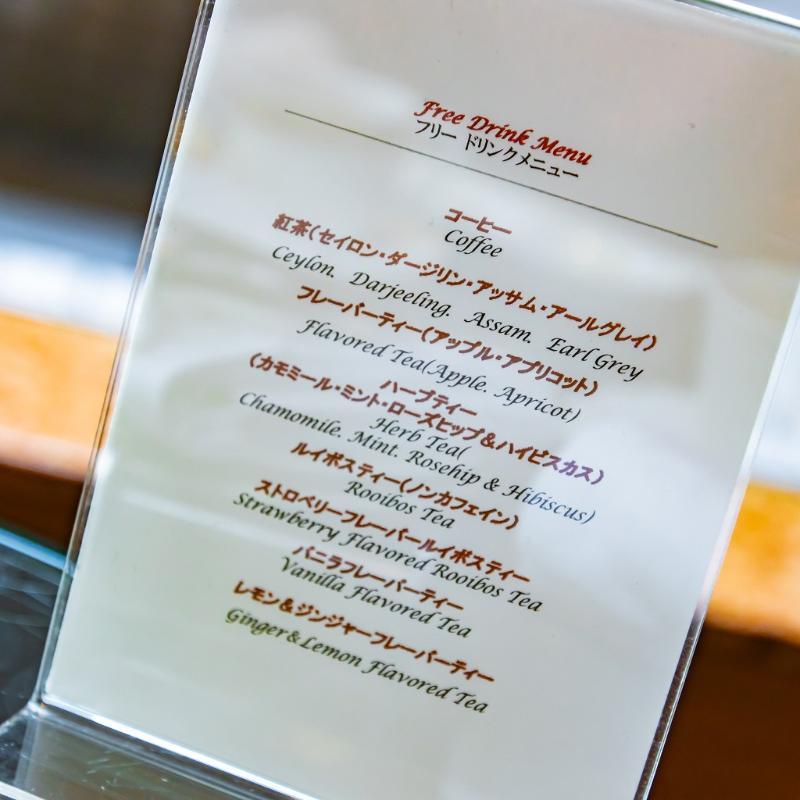 Free Drink Menu
フリー ドリンクメニュー
コーヒー
Coffee
紅茶(セイロン・ダージリン・アッサム・アールグレイ)
Ceylon. Darjeeling. Assam. Earl Grey
フレーバーティー(アップル・アプリコット)
Flavored Tea(Apple. Apricot)
ハーブティー
(カモミール・ミント・ローズヒップ&ハイビスカス)
Herb Tea(
Chamomile. Mint. Rosehip & Hibiscus)
ルイボスティー(ノンカフェイン)
Rooibos Tea
ストロベリーフレーバールイボスティー
Strawberry Flavored Rooibos Tea
バニラフレーバーティー
Vanilla Flavored Tea
レモン&ジンジャーフレーバーティー
Ginger&Lemon Flavored Tea